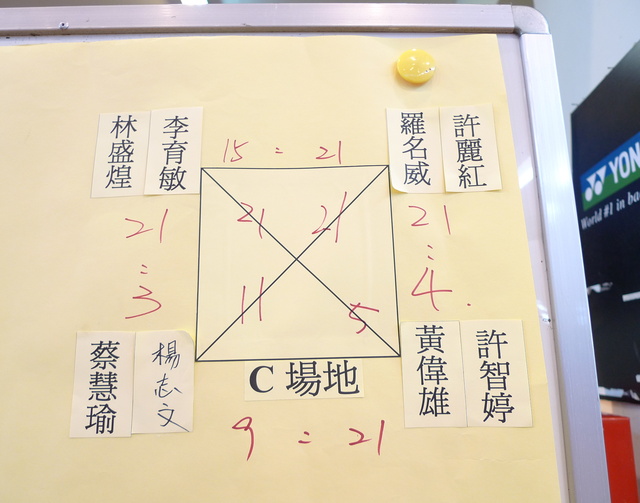 林盛煌
李育敏
羅名威
許麗紅
15 : 21
21 : 3
21
21
21 : 4
11
5
蔡慧瑜
楊志文
黃偉雄
許智婷
C 場地
9 : 21
YON
World #1 in ba